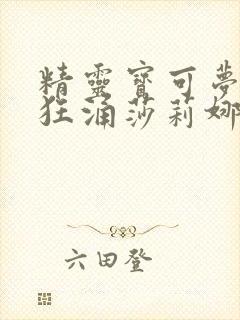 精靈寶可夢
狂涌莎莉娜
六田登